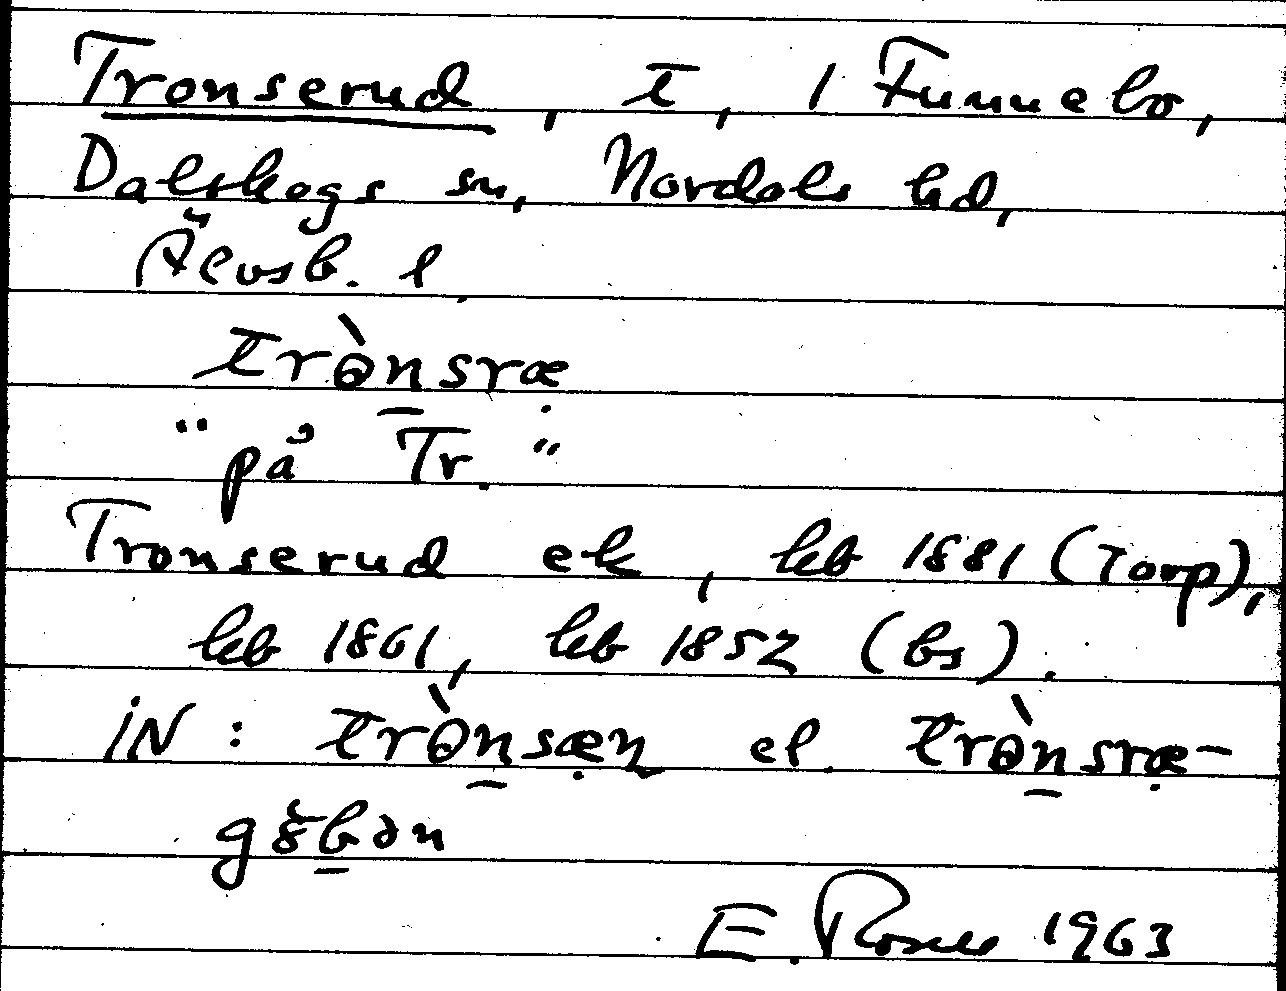 Tronserud, t, 1 Funnebo,
Dalskogs sn, Nordals hd,
Älvsb. l.
trɵ̀n̠sræ̣
"på Tr."
Tronserud ek, kb 1881 (Torp),
kb 1861, kb 1852 (bs).
iN: trɵ̀n̠sæ̣n el. trɵ̀n̠sræ̣-
gȣ̀b̠ən
E. Rosell 1963